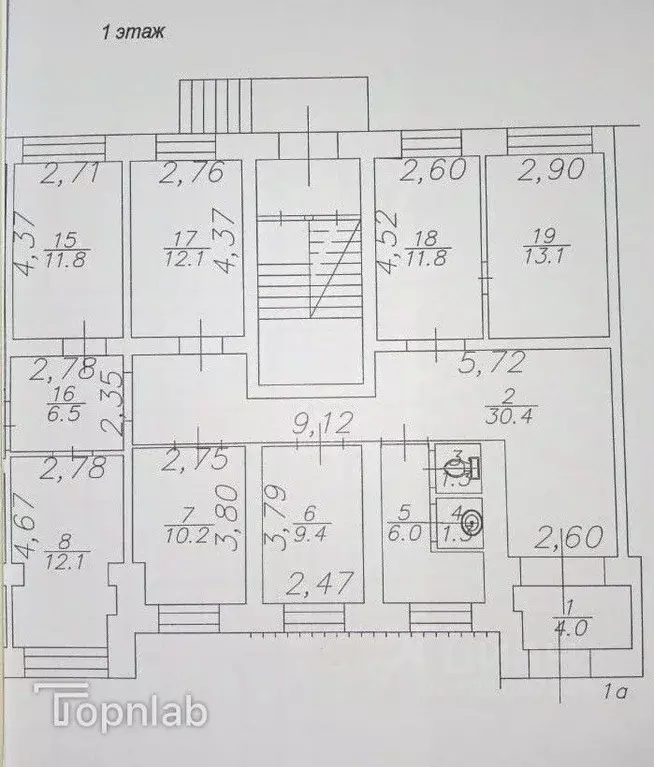 1 этаж
2,71
2,76
2,60
2,90
4,37
15
11.8
17
12.1
4,37
4,52
18
11.8
19
13.1
2,78
16
6.5
2,35
5,72
2
30.4
9,12
2,78
2,75
3
1.3
4,67
8
12.1
7
10.2
3,80
3,79
6
9.4
5
6.0
4
2,47
2,60
1
4.0
1а
Topnlab